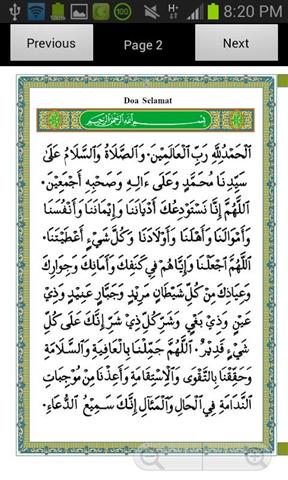 100 H+ 8:20 PM
Previous Page 2 Next
Doa Selamat
بِسْمِ اللَّهِ الرَّحْمَنِ الرَّحِيمِ
اَلْحَمْدُ لِلَّهِ رَبِّ الْعَالَمِينَ. وَالصَّلَاةُ وَالسَّلَامُ عَلَى
سَيِّدِنَا مُحَمَّدٍ وَعَلَى ءَالِهِ وَصَحْبِهِ أَجْمَعِينَ.
اللَّهُمَّ إِنَّا نَسْتَوْدِعُكَ أَدْيَانَنَا وَإِيمَانَنَا وَأَنْفُسَنَا
وَأَمْوَالَنَا وَأَهْلَنَا وَأَوْلَادَنَا وَكُلَّ شَيْءٍ أَعْطَيْتَنَا.
اللَّهُمَّ اجْعَلْنَا وَإِيَّاهُمْ فِي كَنَفِكَ وَأَمَانِكَ وَجِوَارِكَ
وَعِيَاذِكَ مِنْ كُلِّ شَيْطَانٍ مَرِيْدٍ وَجَبَّارٍ عَنِيدٍ وَذِيْ
عَيْنٍ وَذِيْ بَغْيٍ وَشَرِّ كُلِّ ذِيْ شَرٍّ إِنَّكَ عَلَى كُلِّ
شَيْءٍ قَدِيْرٌ. اللَّهُمَّ جَمِّلْنَا بِالْعَافِيَةِ وَالسَّلَامَةِ
وَحَقِّقْنَا بِالتَّقْوَى وَالْاِسْتِقَامَةِ وَأَعِذْنَا مِنْ مُوْجِبَاتِ
النَّدَامَةِ فِي الْحَالِ وَالْمَئَالِ إِنَّكَ سَمِيْعُ الدُّعَاءِ.